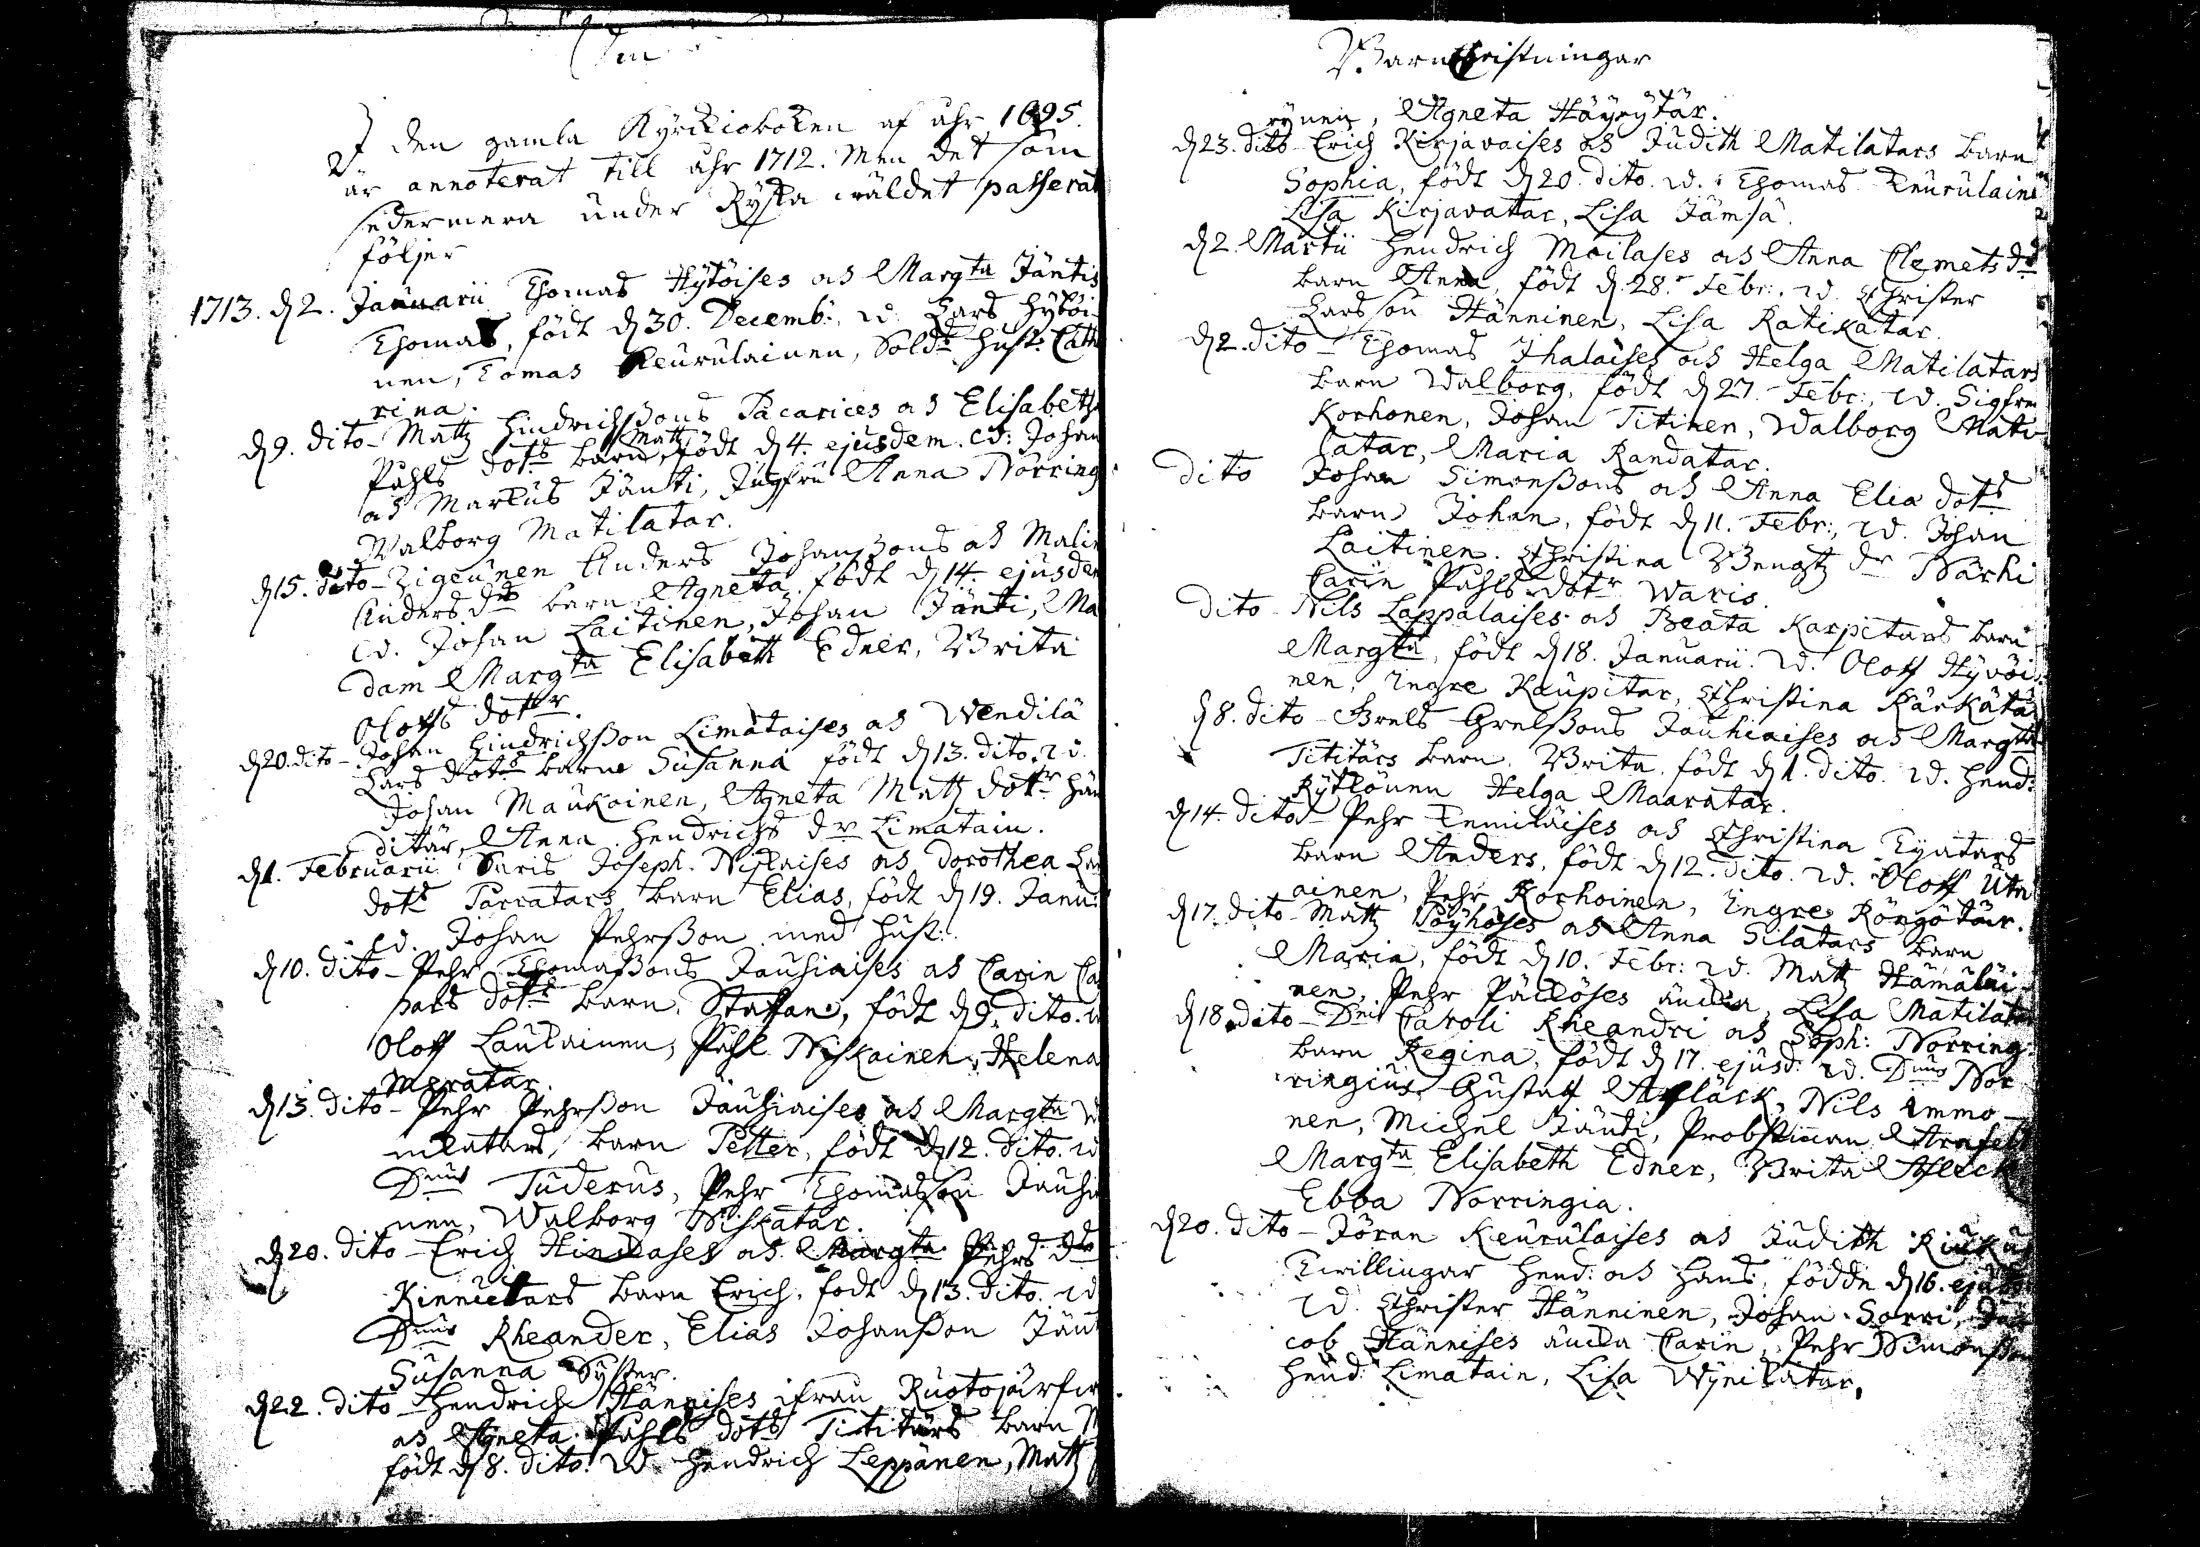 Om
I den gamla Kyrckioboken af åhr 1695.
är annoterat till åhr 1712. Men det som
sedermera under Ryska wäldet passerat
följer
1713. d. 2. Januarii Thomas Hytöises och Margta Jäntis
Thomas, födt d. 30. Decemb: W. Lars Hytöi-
nen, Tomas Keurulainen, Soldt Hust: Cath
rina.
d. 9. dito - Matz Hindrichssons Pacarices och Elisabeth
Påhls dots barn Matz, födt d. 4. ejusdem. W: Johan
och Markus Jänti, Jungfru Anna Norring
Walborg Matilatar.
d. 15. dito - Zigeunen Anders Johanssons och Malin
Anders drs barn Agneta, födt d. 14. ejusdem
W. Johan Laitinen, Johan Jänti, Ma
dam Margta Elisabeth Edner, Brita
Olofs dotr.
d. 20. dito - Johan Hindrichsson Limataises och Wendila
Lars dots barn Susanna födt d. 13. dito. W.
Johan Maukoinen, Agneta Matz dotr Hän
ditär, Anna Hendrichs dr Limatain.
d. 1. Februarii Saris Joseph Niskaises och Dorothea La
dots Parratars barn Elias, födt d. 19. Janu:
W. Johan Pehrsson med Hust:
d. 10. dito - Pehr Thomassons Jauhiaises och Carin Ca
pars dots barn Staffan, födt d. 9. dito. W
Oloff Laukainen, Påhl Niskainen, Helena
Maratar.
d. 13. dito - Pehr Pehrsson Jauhiaises och Margta
mlatars, barn Petter, födt d. 12. dito. W
Dnus Tuderus, Pehr Thomasson Jauhi
nen, Walborg Niskatar.
d. 20. dito - Erich Hinskases och Margta Pehrs drs
Kinnuetars barn Erich, födt d. 13. dito. W
Dnus Rheander, Elias Johansson Jänt
Susanna Syster.
d. 22. dito - Hendrich Hännises ifrån Ruotojärfwi
och Agneta Påhls dots Tititärs barn M
födt d. 8. dito. W. Hendrich Leppänen, Matz
Barnchristningar
rynen, Agneta Häyrytär.
d. 23. dito - Erich Kirjavaises och Judith Matilatars barn
Sophia, födt d. 20. dito. W. Thomas Keurulaine
Lisa Kirjavatar, Lisa Jämsä.
d. 2. Martii Hendrich Moilases och Anna Clemets drs
barn Anna, födt d. 28. Febr:, W. Christer
Larsson Hänninen, Lisa Ratikatar.
d. 2. dito - Thomas Ihalaises och Helga Matilatars
barn Walborg, födt d. 27. Febr:, W. Sigfre
Korhonen, Johan Titinen, Walborg Mati-
latar, Maria Randatar.
dito Johan Simonssons och Anna Elia dots
barn Johan, födt d. 11. Febr:, W. Johan
Laitinen. Christina Bengtz dr Närhi
Carin Påhls dotr Waris.
dito - Nils Lappalaises och Beata Karpitars barn
Margta, födt d. 18. Januarii. W. Oloff Hyvöi-
nen, Ingre Kaupitar, Christina Kärkätä
d. 8. dito - Grels Grelssons Jauhiaises och Margta
Tititärs barn Brita, födt d. 1. dito. W. Hend:
Rytkönen Helga Maaratar.
d. 14. dito - Pehr Kemiläises och Christina Tyätars
barn Anders, födt d. 12. dito. W. Oloff Utri
ainen, Pehr Korhoinen, Ingre Röngötär.
d. 17. dito - Matz Pöyhöses och Anna Silatars barn
Maria, födt d. 10. Febr: W. Matz Hämäläi-
nen, Pehr Päcköses äncka, Lisa Matilatar
d. 18. dito - Dni Caroli Rheandri och Soph: Norring
barn Regina, födt d. 17. ejusd: W. Dnus Nor
ringius, Gustaff Afläck, Nils Immo-
nen, Michel Jänti, Probstinnan Arnfelt
Margta Elisabeth Edner, Brita Afleck
Ebba Norringia.
d. 20. dito - Jöran Keurulaises och Judith Riuku
Twillingar Hend: och Hans, födde d. 16. ejusd
W. Christer Hänninen, Johan Sorri, Ja
cob Hännises äncka Carin, Pehr Simonsson
Hend: Limatain, Lisa Wynikatar,